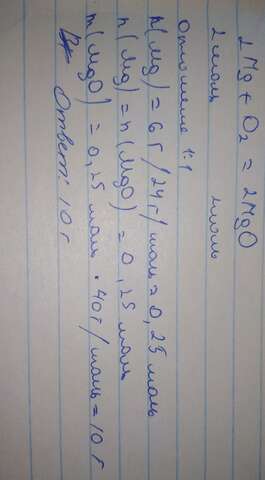 2Mg + O₂ = 2MgO
2моль моль
Отношение 1:1
n(Mg) = 6г/24г/моль = 0,25 моль
n(Mg) = n(MgO) = 0,25 моль
m(MgO) = 0,25 моль · 40г/моль = 10 г
Ответ: 10 г